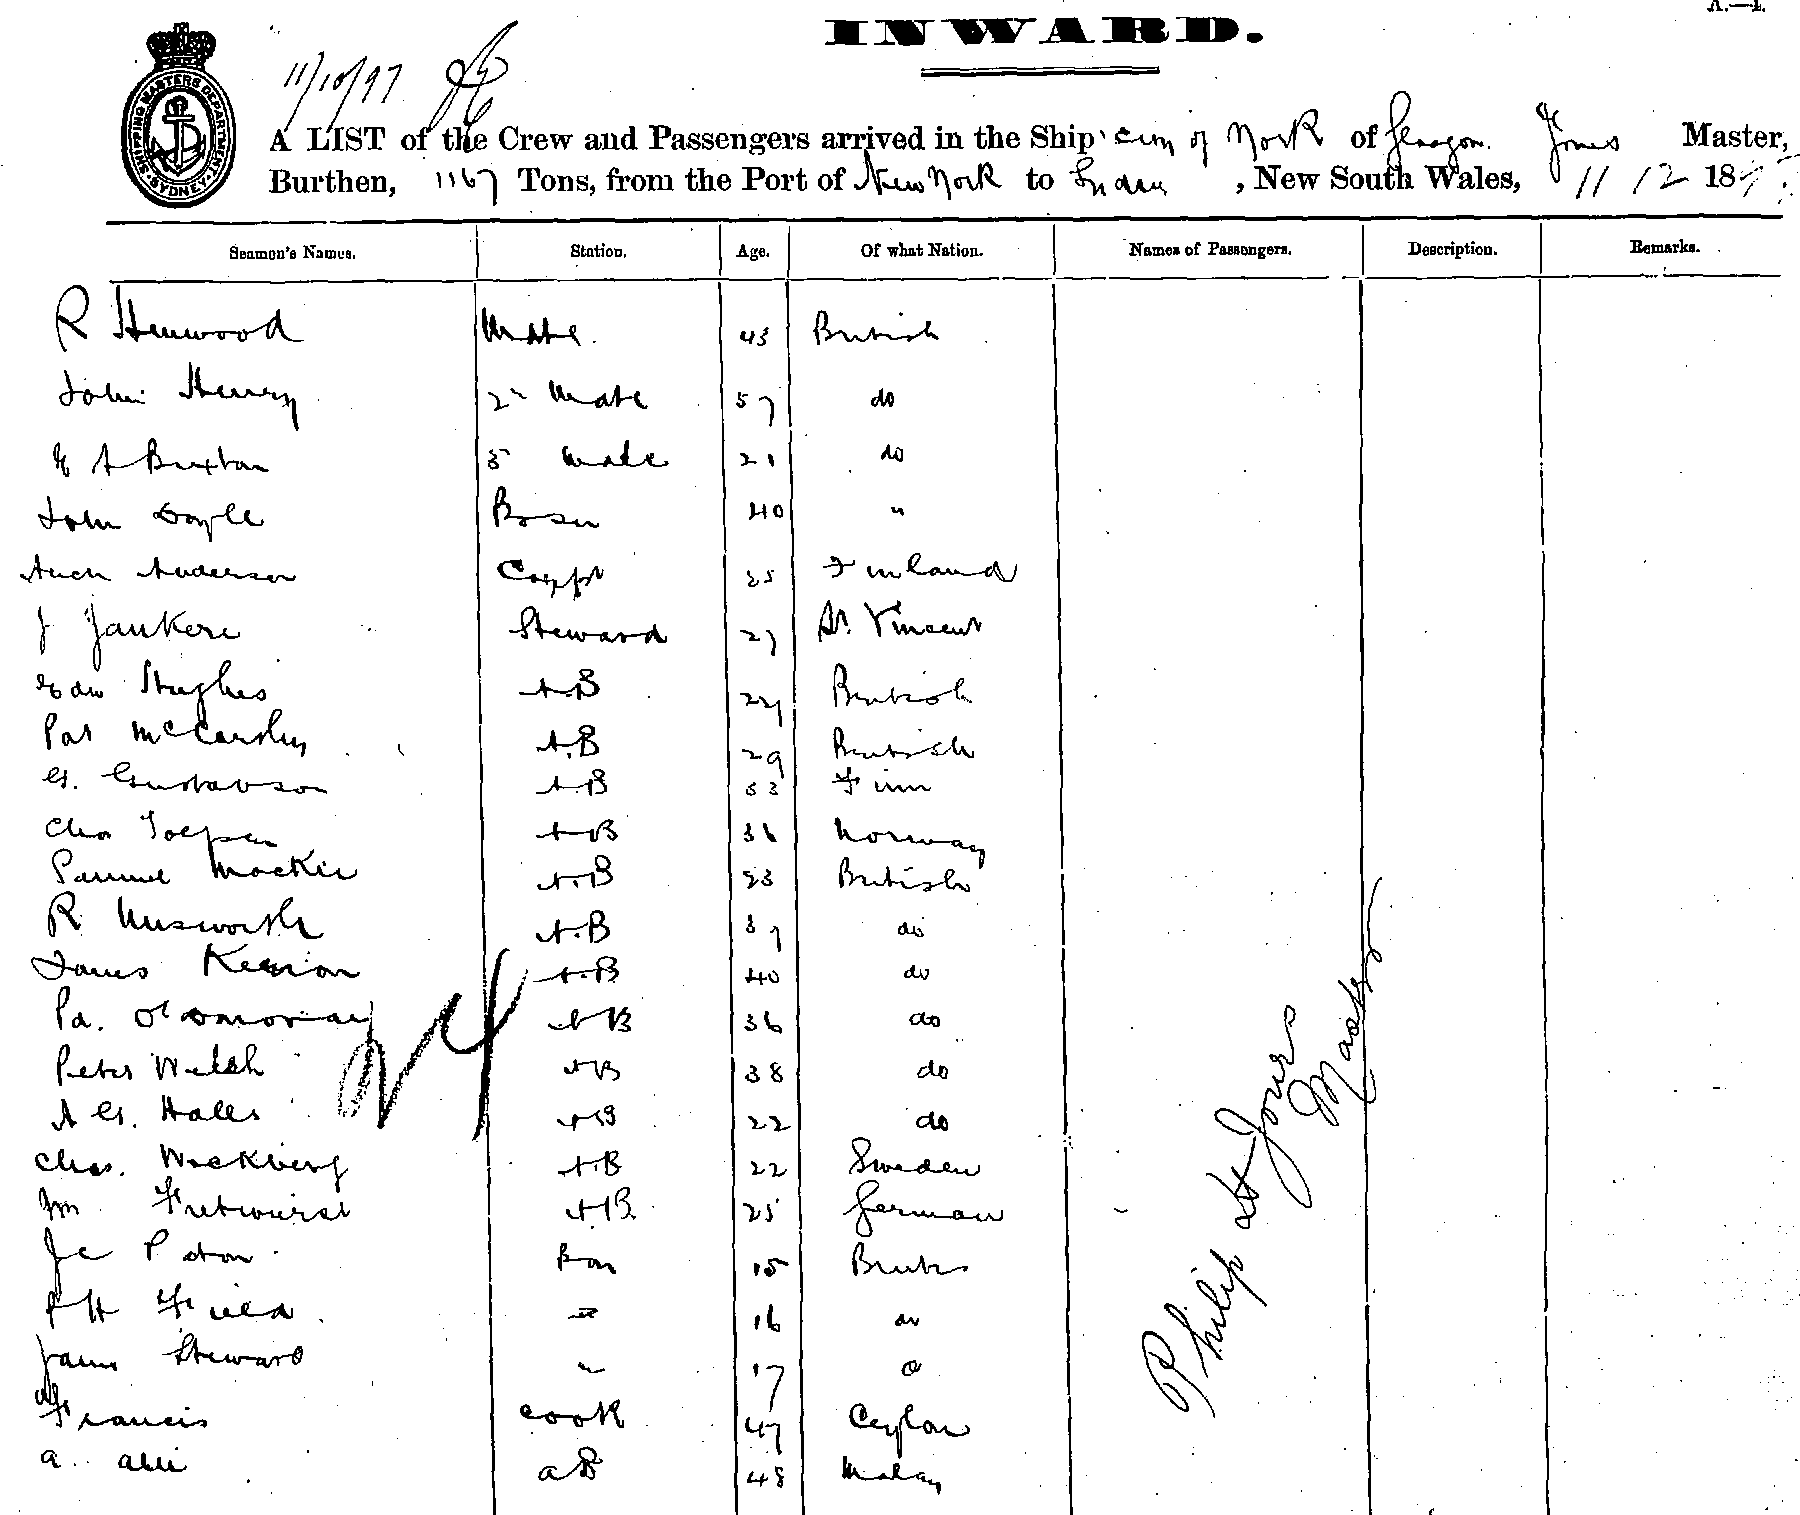 A.—1.
INWARD.
SHIPPING MASTERS DEPARTMENT SYDNEY
11/10/97
A LIST of the Crew and Passengers arrived in the Ship City of York of Glasgow Jones Master,
Burthen, 1167 Tons, from the Port of New York to Sydney, New South Wales, 11/12 189
Seamen's Names. Station. Age. Of what Nation. Names of Passengers. Description. Remarks.
R Henwood Mate 43 British
John Henry 2n Mate 57 do
E A Buxton 3 Mate 21 do
John Doyle Bosn 40 "
Anderson Carpt Finland
J Steward 27 St. Vincent
Edw Hughes A.B British
Pat McCarthy A.B 29 British
G. Gustavson AB 33 Finn
Chas AB 36 Norway
Samuel Mackie A.B 23 British
R Unsworth A.B 37 do
James Kenion A.B 40 do
Pa. AB 36 do
Peter Welsh AB 38 do
A G. Hales AB 22 do
Chas. Wockberg A.B 22 Sweden
Wm AB. 25 German
Jc Paton Boy 15 British
P H Field " 16 do
James Steward " 17 do
Francis cook 47 Ceylon
a. alli aB 48 Malay
24
Philip H Jones
Master